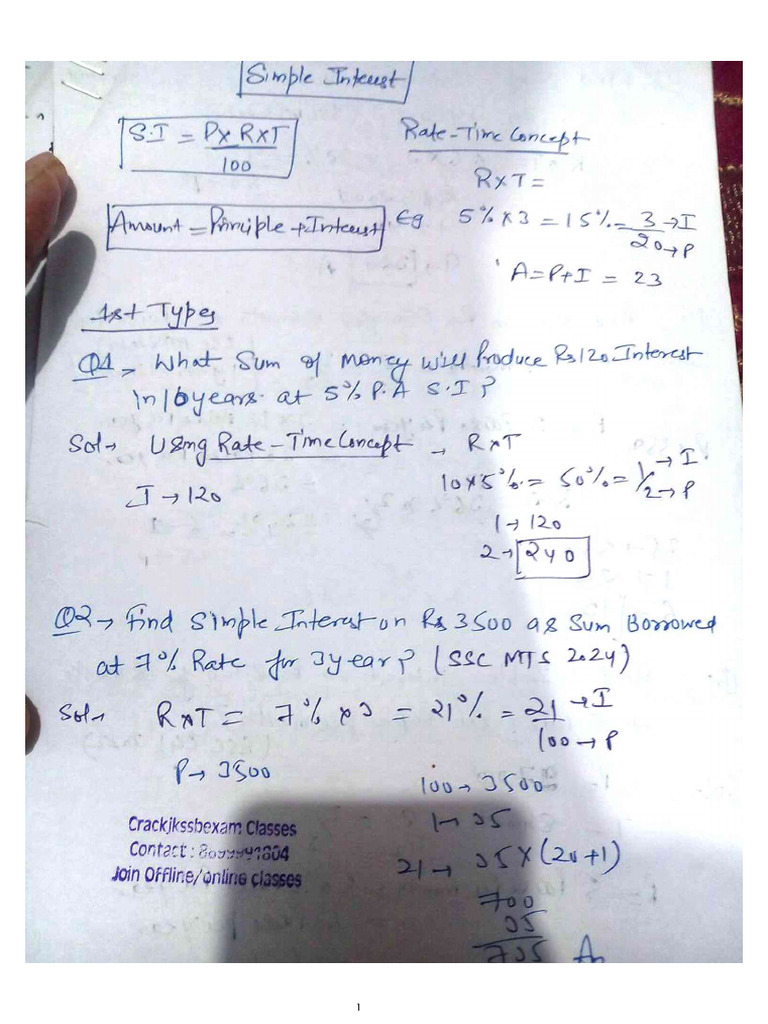 Simple Interest
S.I = P×R×T
100
Rate-Time Concept
R×T=
Amount = Principle + Interest
Eg 5%×3 = 15% = 3→I
20→P
A=P+I = 23
1st Types
Q1→ What Sum of money will Produce Rs120 Interest
in 10 years at 5% P.A S.I?
Sol→ Using Rate-Time Concept → R×T
I→120
10×5% = 50% = 1/2 →I
→P
1→120
2→240
Q2→ Find Simple Interest on Rs 3500 as Sum Borrowed
at 7% Rate for 3year? (SSC MTS 2024)
Sol→ R×T = 7% ×3 = 21% = 21→I
100→P
P→3500
100→3500
1→35
21→ 35×(20+1)
700
35
735
Crackjkssbexam Classes
Contact :
Join Offline/online classes
1